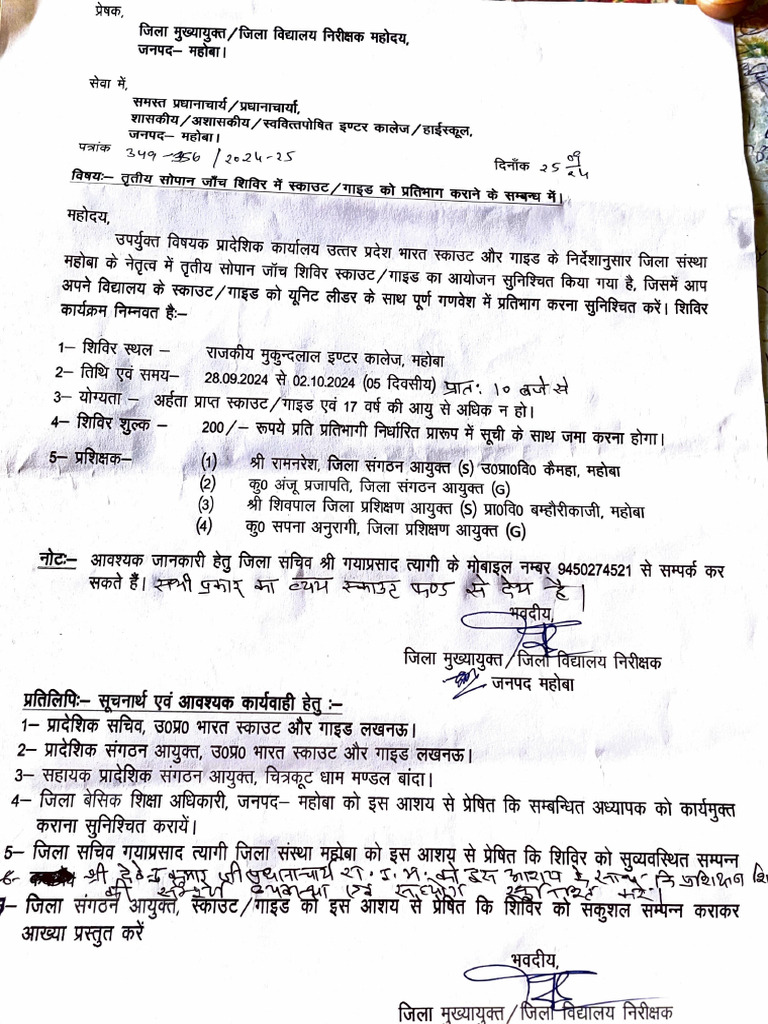 प्रेषक,
जिला मुख्यायुक्त/जिला विद्यालय निरीक्षक महोदय,
जनपद– महोबा।
सेवा में,
समस्त प्रधानाचार्य/प्रधानाचार्या,
शासकीय/अशासकीय/स्ववित्तपोषित इण्टर कालेज/हाईस्कूल,
जनपद– महोबा।
पत्रांक 349-356/2024-25 दिनाँक 25 09 24
विषयः– तृतीय सोपान जाँच शिविर में स्काउट/गाइड को प्रतिभाग कराने के सम्बन्ध में।
महोदय,
उपर्युक्त विषयक प्रादेशिक कार्यालय उत्तर प्रदेश भारत स्काउट और गाइड के निर्देशानुसार जिला संस्था
महोबा के नेतृत्व में तृतीय सोपान जॉच शिविर स्काउट/गाइड का आयोजन सुनिश्चित किया गया है, जिसमें आप
अपने विद्यालय के स्काउट/गाइड को यूनिट लीडर के साथ पूर्ण गणवेश में प्रतिभाग करना सुनिश्चित करें। शिविर
कार्यक्रम निम्नवत है:–
1– शिविर स्थल – राजकीय मुकुन्दलाल इण्टर कालेज, महोबा
2– तिथि एवं समय– 28.09.2024 से 02.10.2024 (05 दिवसीय) प्रातः १० बजे से
3– योग्यता – अर्हता प्राप्त स्काउट/गाइड एवं 17 वर्ष की आयु से अधिक न हो।
4– शिविर शुल्क – 200/– रूपये प्रति प्रतिभागी निर्धारित प्रारूप में सूची के साथ जमा करना होगा।
5– प्रशिक्षक– (1) श्री रामनरेश, जिला संगठन आयुक्त (S) उ०प्रा०वि० कैमहा, महोबा
(2) कु० अंजू प्रजापति, जिला संगठन आयुक्त (G)
(3) श्री शिवपाल जिला प्रशिक्षण आयुक्त (S) प्रा०वि० बम्हौरीकाजी, महोबा
(4) कु० सपना अनुरागी, जिला प्रशिक्षण आयुक्त (G)
नोटः– आवश्यक जानकारी हेतु जिला सचिव श्री गयाप्रसाद त्यागी के मोबाइल नम्बर 9450274521 से सम्पर्क कर
सकते हैं। सभी प्रकार का व्यय स्काउट फण्ड से देय है।
भवदीय,
जिला मुख्यायुक्त/जिला विद्यालय निरीक्षक
जनपद महोबा
प्रतिलिपिः– सूचनार्थ एवं आवश्यक कार्यवाही हेतु :–
1– प्रादेशिक सचिव, उ०प्र० भारत स्काउट और गाइड लखनऊ।
2– प्रादेशिक संगठन आयुक्त, उ०प्र० भारत स्काउट और गाइड लखनऊ।
3– सहायक प्रादेशिक संगठन आयुक्त, चित्रकूट धाम मण्डल बांदा।
4– जिला बेसिक शिक्षा अधिकारी, जनपद– महोबा को इस आशय से प्रेषित कि सम्बन्धित अध्यापक को कार्यमुक्त
कराना सुनिश्चित करायें।
5– जिला सचिव गयाप्रसाद त्यागी जिला संस्था महोबा को इस आशय से प्रेषित कि शिविर को सुव्यवस्थित सम्पन्न
6- श्री देवेन्द्र कुमार जी प्रधानाचार्य रा. इ. म. को इस आशय के साथ कि प्रशिक्षण
की व्यवस्था एवं सहयोग करें।
– जिला संगठन आयुक्त, स्काउट/गाइड को इस आशय से प्रेषित कि शिविर को सकुशल सम्पन्न कराकर
आख्या प्रस्तुत करें
भवदीय,
जिला मुख्यायुक्त/जिला विद्यालय निरीक्षक